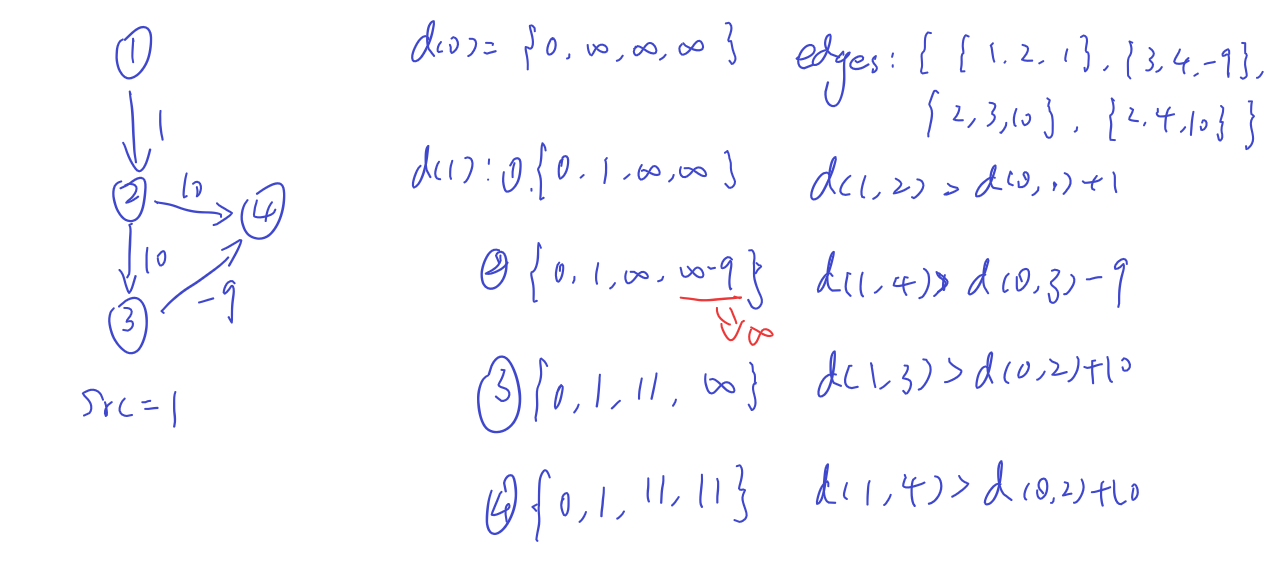 d(0) = {0, ∞, ∞, ∞}
edges: { {1, 2, 1}, {3, 4, -9},
{2, 3, 10}, {2, 4, 10} }
1
1
d(1): ①. {0, 1, ∞, ∞}
d(1, 2) > d(0, 1) + 1
2
10
4
10
② {0, 1, ∞, ∞-9}
d(1, 4) > d(0, 3) - 9
-9
∞
3
③ {0, 1, 11, ∞}
d(1, 3) > d(0, 2) + 10
src = 1
④ {0, 1, 11, 11}
d(1, 4) > d(0, 2) + 10